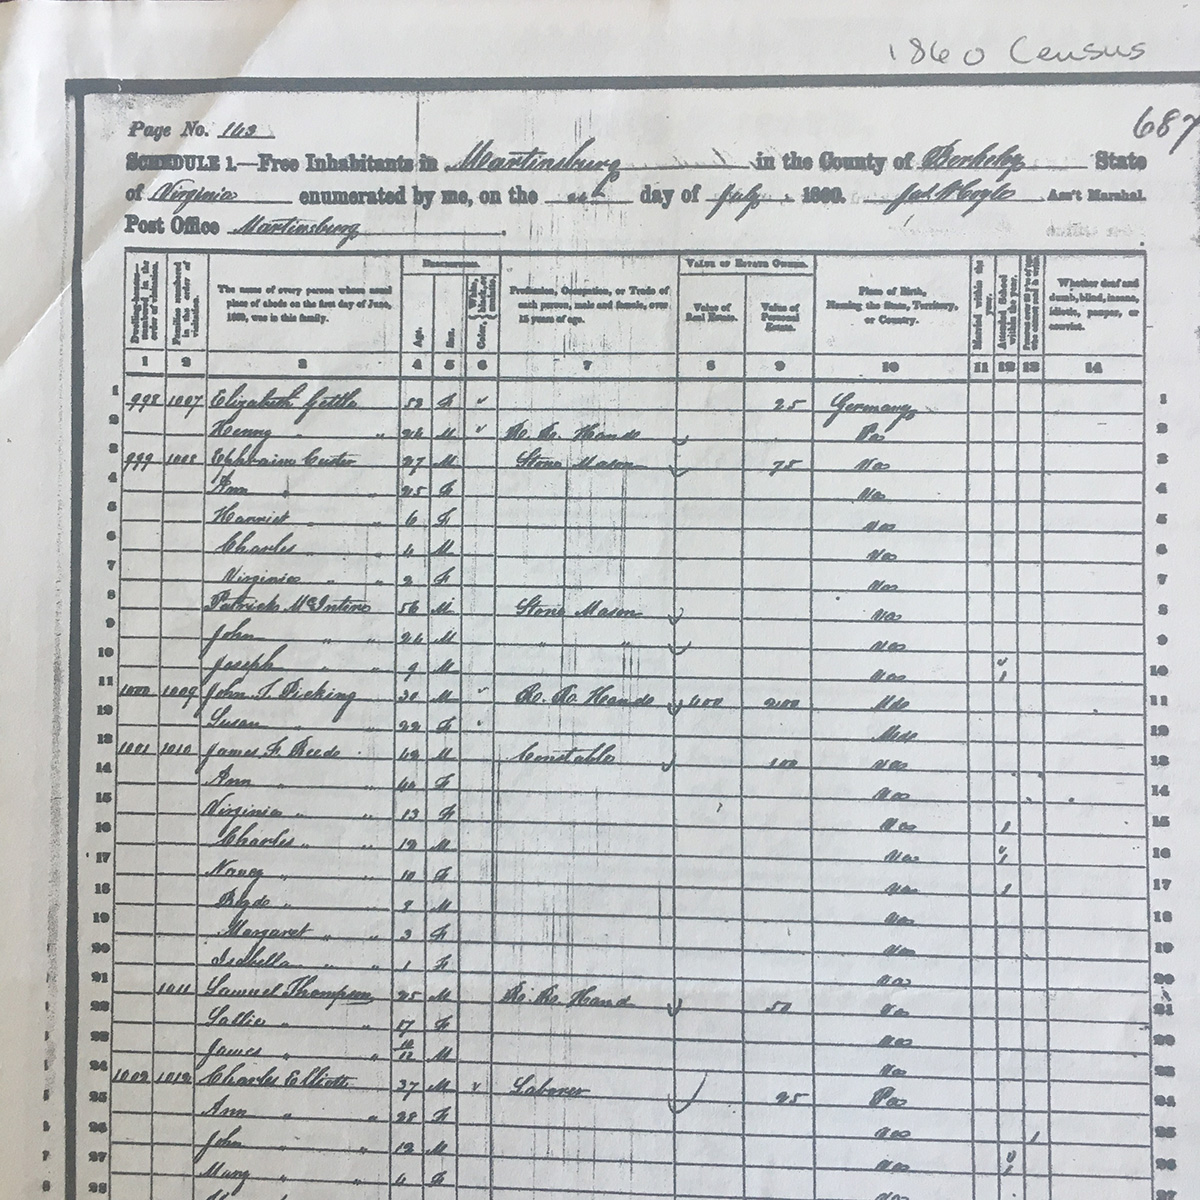 1860 Census
687
Page No. 163
SCHEDULE 1.—Free Inhabitants in Martinsburg in the County of Berkeley State
of Virginia enumerated by me, on the day of July 1860. Ass't Marshal.
Post Office Martinsburg
Dwelling-houses—numbered in the order of visitation.
Families numbered in the order of visitation.
The name of every person whose usual place of abode on the first day of June, 1860, was in this family.
DESCRIPTION.
Age.
Sex.
Color, White, black, or mulatto.
Profession, Occupation, or Trade of each person, male and female, over 15 years of age.
VALUE OF ESTATE OWNED.
Value of Real Estate.
Value of Personal Estate.
Place of Birth, Naming the State, Territory, or Country.
Married within the year.
Attended School within the year.
Whether deaf and dumb, blind, insane, idiotic, pauper, or convict.
1 2 3 4 5 6 7 8 9 10 11 12 13 14
1 998 1007 Elizabeth F 25 Germany 1
2 Henry " " M R. R. Hand Pa 2
3 999 1008 Ephraim Custer 27 M Stone Mason 75 Va 3
4 Ann " " 25 F Va 4
5 Harriet " " 6 F Va 5
6 Charles " " 4 M Va 6
7 Virginia " " 2 F Va 7
8 Patrick McIntire 56 M Stone Mason Va 8
9 John " " M " " Va 9
10 Joseph " " 9 M Va 10
11 1000 1009 John T. Picking 30 M R. R. Hand 400 Md 11
12 Susan " 22 F Md 12
13 1001 1010 James F. Reede M Constable 100 Va 13
14 Ann " " F Va 14
15 Virginia " " 13 F Va 15
16 Charles " " 12 M Va 16
17 Nancy " " 10 F Va 17
18 " M Va 18
19 Margaret " " 3 F Va 19
20 Isabella " " 1 F Va 20
21 1011 Samuel Thompson 25 M R. R. Hand 50 Va 21
22 Sallie " " 17 F Va
23 James " " M Va
24 1002 1012 Charles Elliott 37 M Laborer 25 Pa 24
25 Ann " " 28 F Va 25
26 John " " 12 M Va 26
27 Mary " " F 27
28